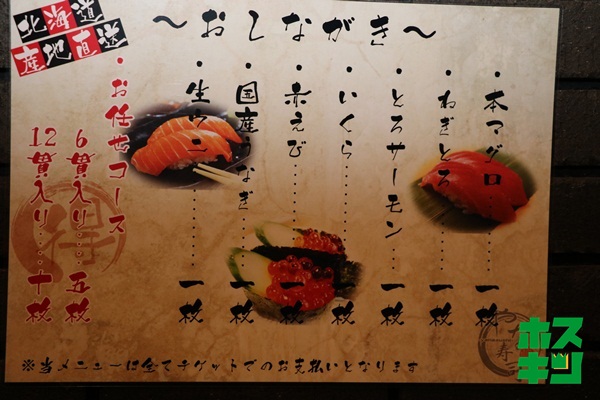 北海道
産地直送
～おしながき～
・本マグロ……一枚
・ねぎとろ……一枚
・とろサーモン……一枚
・いくら……一枚
・赤えび……一枚
・国産うなぎ……一枚
・生ウニ……一枚
・お任せコース
6貫入り……五枚
12貫入り……十枚
※当メニューは全てチケットでのお支払いとなります
ホスキン